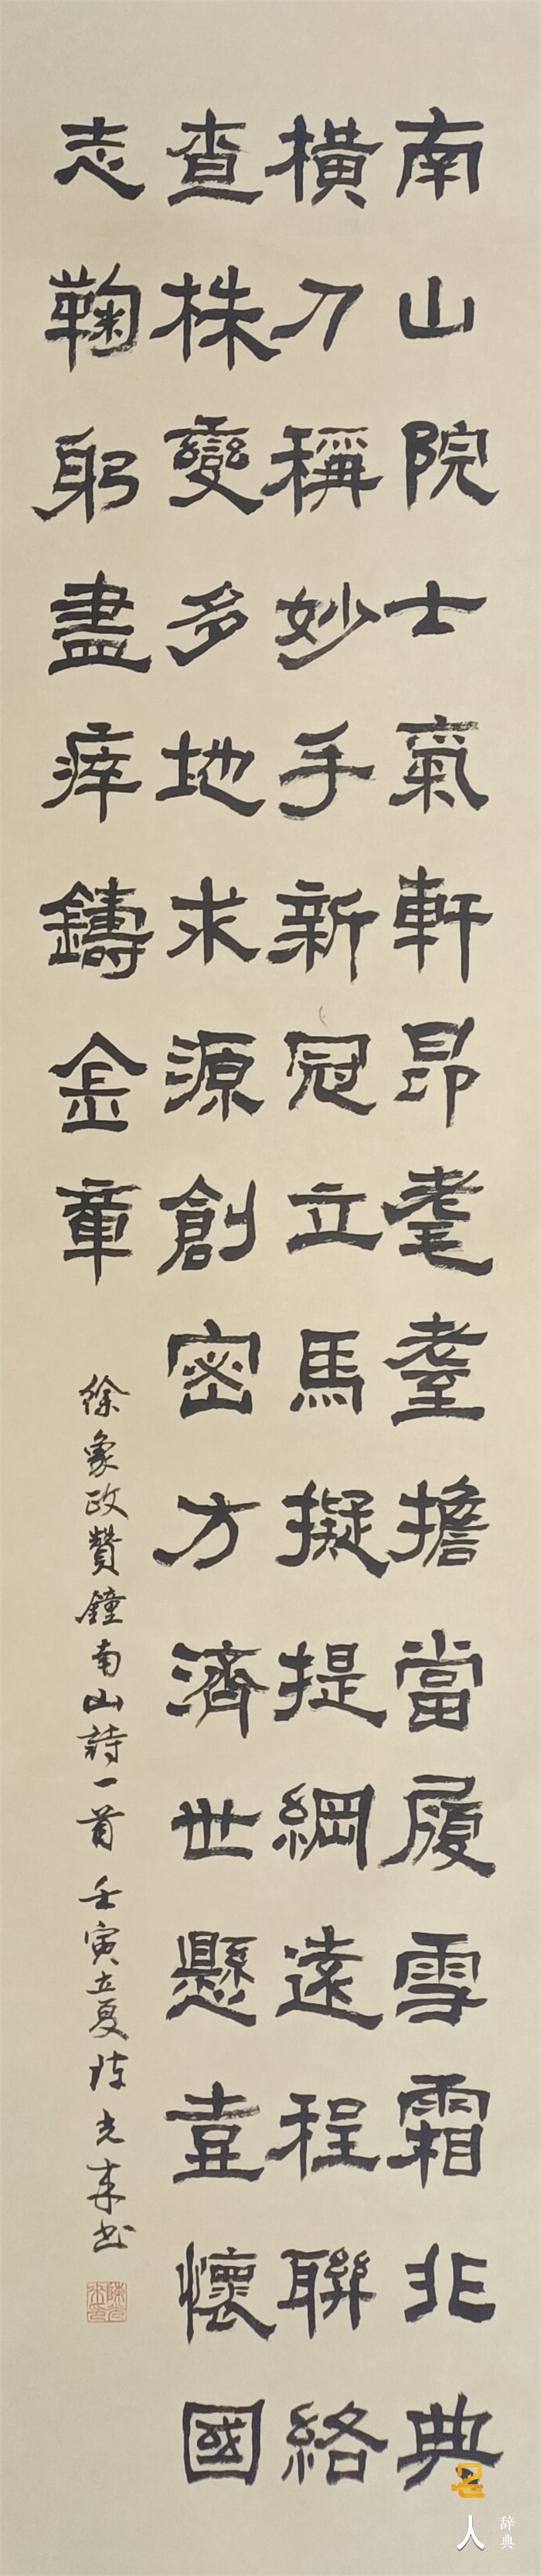 南山院士氣軒昂耄耋擔當履雪霜非典
橫刀稱妙手新冠立馬擬提綱遠程聯絡
查株變多地求源創密方濟世懸壺懷國
志鞠躬盡瘁鑄金章
徐象政贊鐘南山詩一首壬寅立夏陳光來书
人
辞典